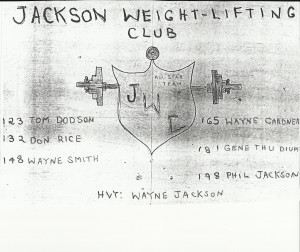 JACKSON WEIGHT-LIFTING
CLUB
ALL STAR
TEAM
J
W
C
123 TOM DODSON
132 DON RICE
148 WAYNE SMITH
165 WAYNE GARDNER
181 GENE THU DIUM
198 PHIL JACKSON
HVT: WAYNE JACKSON